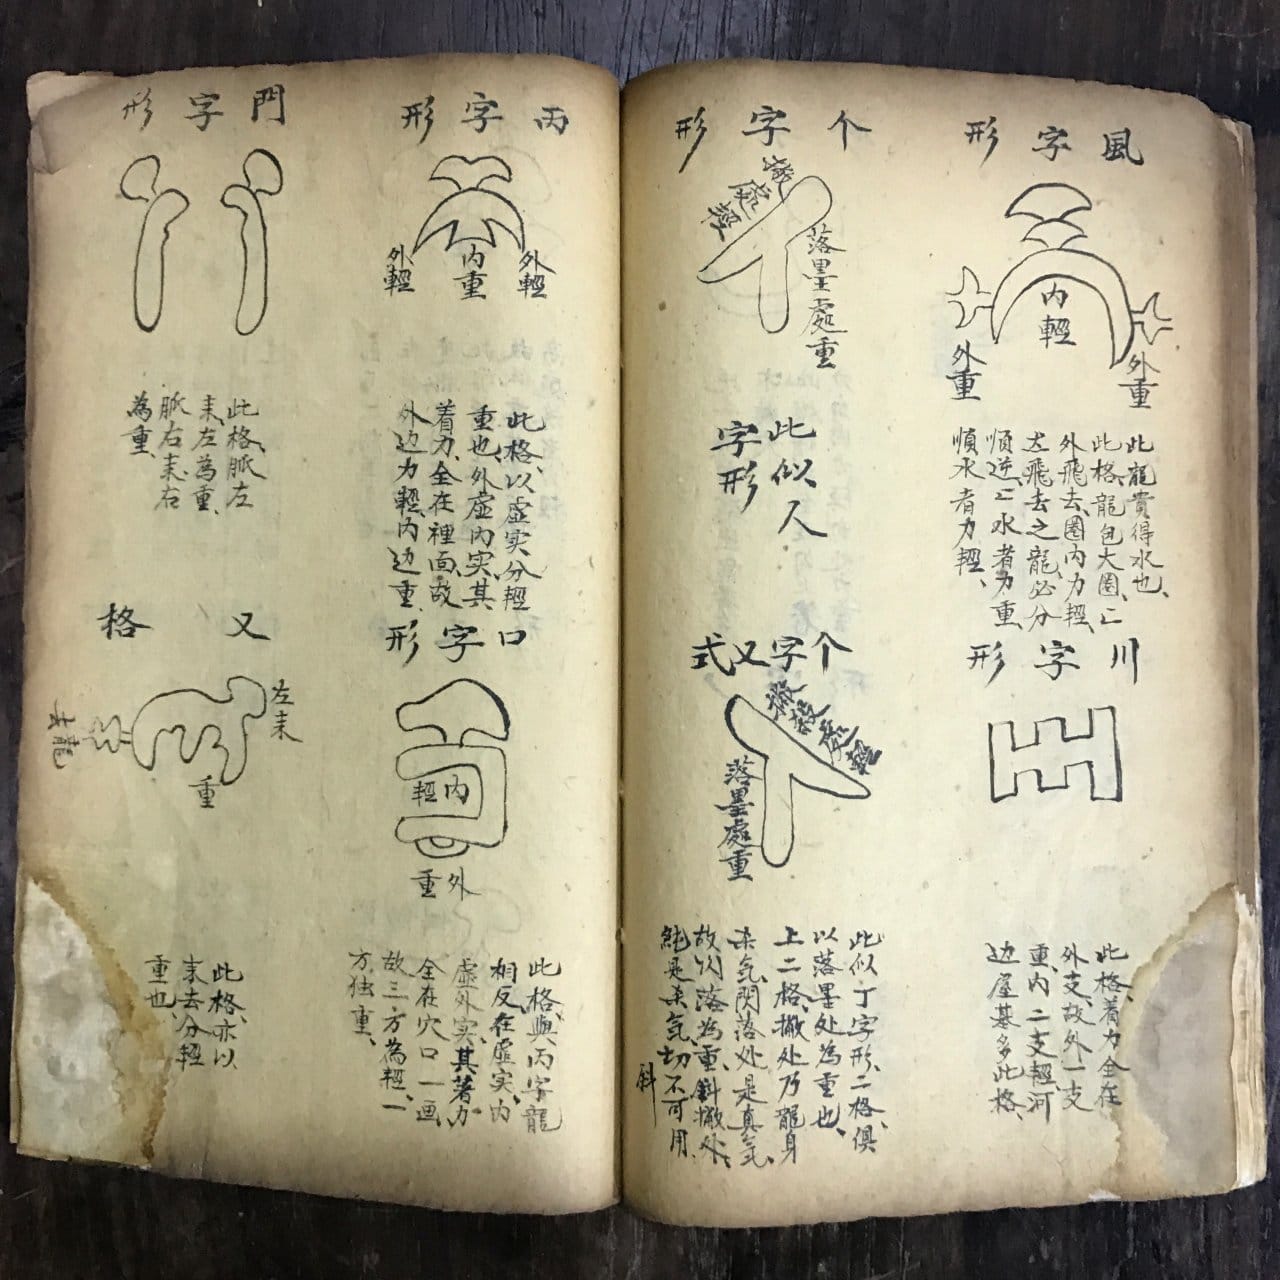 風字形
內輕
外重
外重
此龍貴得水也、
此格、龍包大圈、匕
外飛去、圈內力輕、
左飛去之龍、必分
順逆、匕水者力重、
順水者力輕、
川字形
此格、着力全在
外支、故外一支
重、內二支輕、河
边屋基多此格、
个字形
處輕
落墨處重
此似人
字形
个字又式
撇處輕
落墨處重
此似丁字形、二格俱
以落墨处為重也、
上二格、撇处乃龍身
杀气、閃落处是真气、
故以落為重、斜撇处、
純是杀气、切不可用
斜
丙字形
外輕
內重
外輕
此格、以虛实分輕
重也、外虛內实、其
着力、全在裡面、故
外边力輕、內边重、
口字形
內輕
外重
此格與丙字龍
相反、在虛实、內
虛外实、其著力
全在穴口一画
故三方為輕、一
方独重、
門字形
此格、脈左
耒、左為重、
脈右耒、右
為重、
又格
左耒
重
去龍
此格、亦以
耒去分輕
重也、